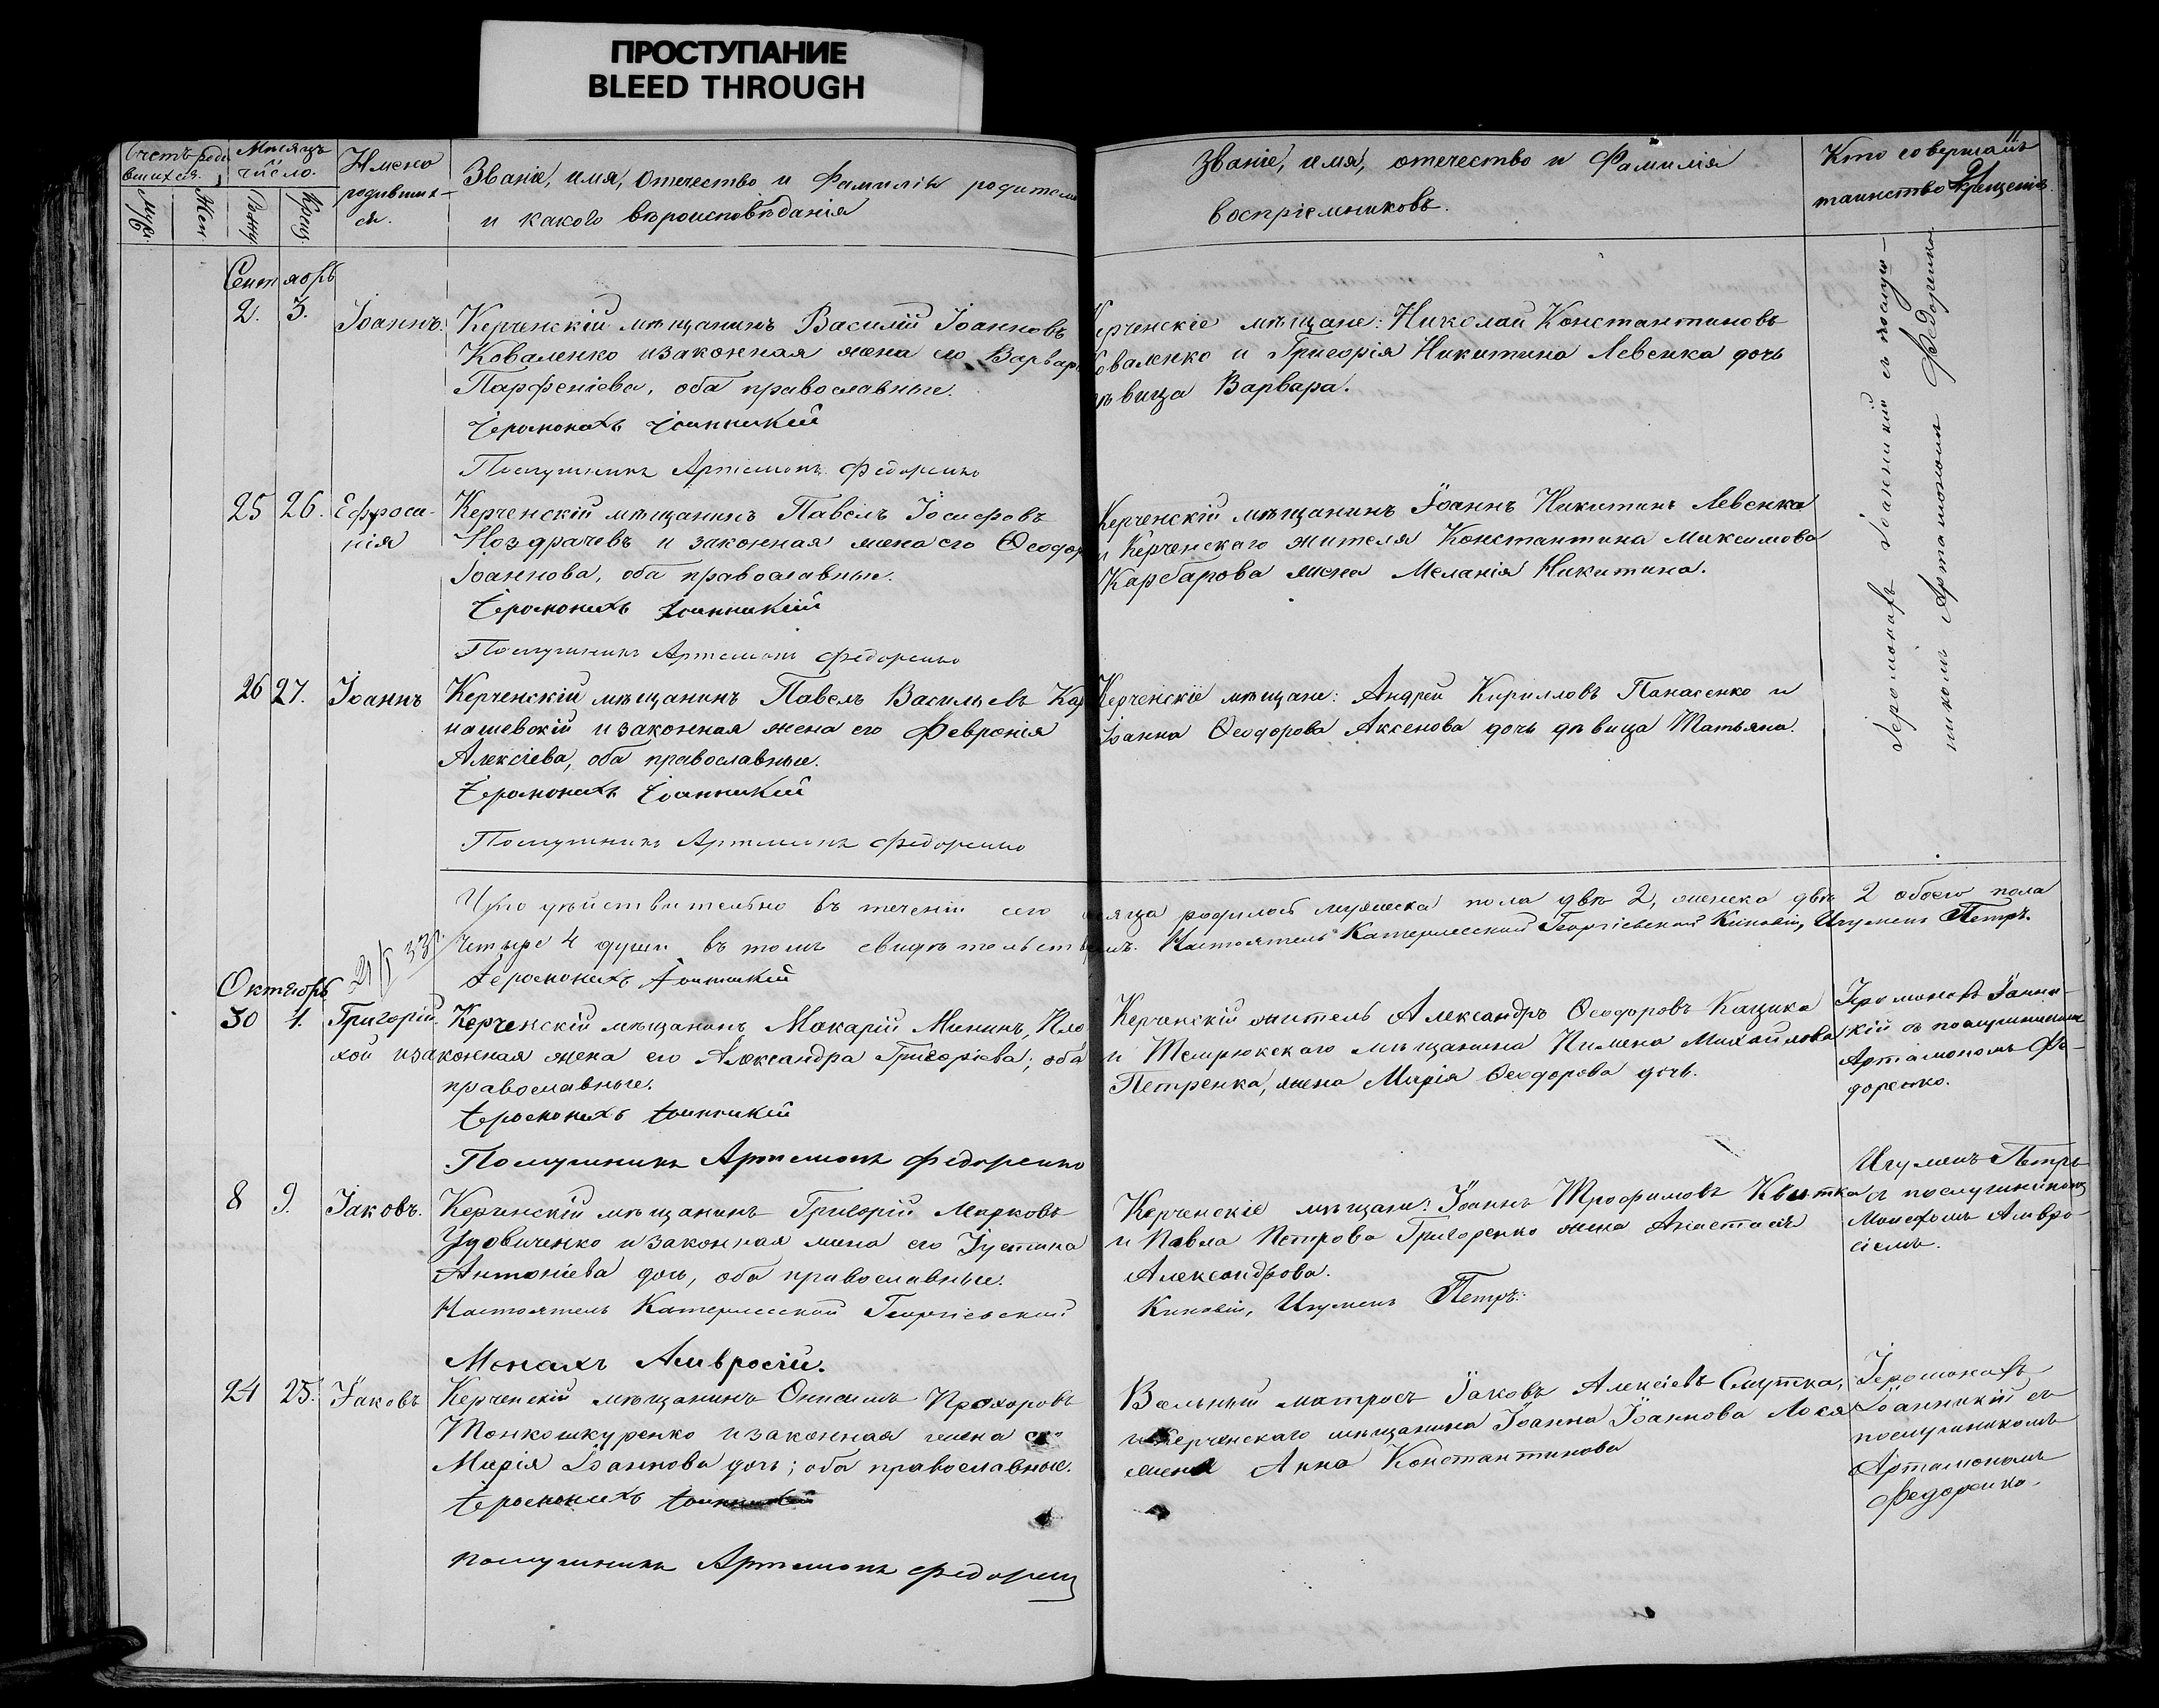 ПРОСТУПАНИЕ
BLEED THROUGH
Счетъ роди
вшихся.
Мѣсяцъ
число.
Имена
родивших-
ся.
Званіе, имя, Отечество и Фамиліи родителей
и какого вѣроисповѣданія
Муж.
Жен.
Крещ.
Званіе, имя, отечество и Фамилія
воспріемниковъ.
Кто совершалъ
таинство крещенія.
Сентябрь
2. 3. Іоаннъ. Керченскій мѣщанинъ Василій Іоанновъ
Коваленко и законная жена его Варвара
Парфеніева, оба православные.
Іеромонахъ Іоанникій
Послушникъ Артемонъ Федоренко
Керченскіе мѣщане: Николай Константиновъ
Коваленко и Григорія Никитина Левенка дочь
дѣвица Варвара.
Іеромонахъ Іоанникій съ послуш-
никомъ Артамономъ Федоренко.
25 26. Ефроси-
нія
Керченскій мѣщанинъ Павелъ Іосифовъ
Ноздрачевъ и законная жена его Ѳеодор
Іоаннова, оба православные.
Іеромонахъ Іоанникій
Послушникъ Артемонъ Федоренко
Керченскій мѣщанинъ Іоаннъ Никитинъ Левенка
и Керченскаго жителя Константина Максимова
Карбарова жена Меланія Никитина.
26 27. Іоаннъ Керченскій мѣщанинъ Павелъ Васильевъ Кар
нашевскій и законная жена его Февронія
Алексіева, оба православные.
Іеромонахъ Іоанникій
Послушникъ Артемонъ Федоренко
Керченскіе мѣщане: Андрей Кирилловъ Панасенко и
Іоанна Ѳеодорова Аксенова дочь дѣвица Татьяна.
Что дѣйствительно въ теченіи сего мѣсяца родилось мужеска пола двѣ 2, женска двѣ 2 обоего пола
Четыре 4 души въ томъ свидѣтельствуемъ. Настоятель Катерлесской Георгіевской Киновіи, Игуменъ Петръ.
Іеромонахъ Іоанникій
Октябрь
30 1. Григорій. Керченскій мѣщанинъ Макарій Мининъ, Пло
хой и законная жена его Александра Григоріева; оба
православные.
Іеромонахъ Іоанникій
Послушникъ Артемонъ Федоренко
Керченскій житель Александръ Ѳеодоровъ Кацика
и Темрюкскаго мѣщанина Пимена Михайлова
Петренка, жена Марія Ѳеодорова дочь.
Іеромонахъ Іоанни-
кій съ послушникомъ
Артамономъ Фе-
доренко.
8 9. Іаковъ. Керченскій мѣщанинъ Григорій Марковъ
Удовиченко и законная жена его Іустина
Антоніева дочь, оба православные.
Настоятель Катерлесской Георгіевской
Монахъ Амвросій.
Керченскіе мѣщане: Іоаннъ Трофимовъ Квитка
и Павла Петрова Григоренко жена Анастасія
Александрова.
Киновіи, Игуменъ Петръ.
Игуменъ Петръ
съ послушникомъ
Монахомъ Амвро-
сіемъ.
24 25. Іаковъ Керченскій мѣщанинъ Онисимъ Прохоровъ
Тонкошкуренко и законная жена его
Марія Іоаннова дочь; оба православные.
Іеромонахъ Іоанникій
послушникъ Артемонъ Федоренко
Вольный матросъ Іаковъ Алексіевъ Смутка,
и Керченскаго мѣщанина Іоанна Іоаннова Лося
жена Анна Константинова
Іеромонахъ
Іоанникій съ
послушникомъ
Артамономъ
Федоренко.